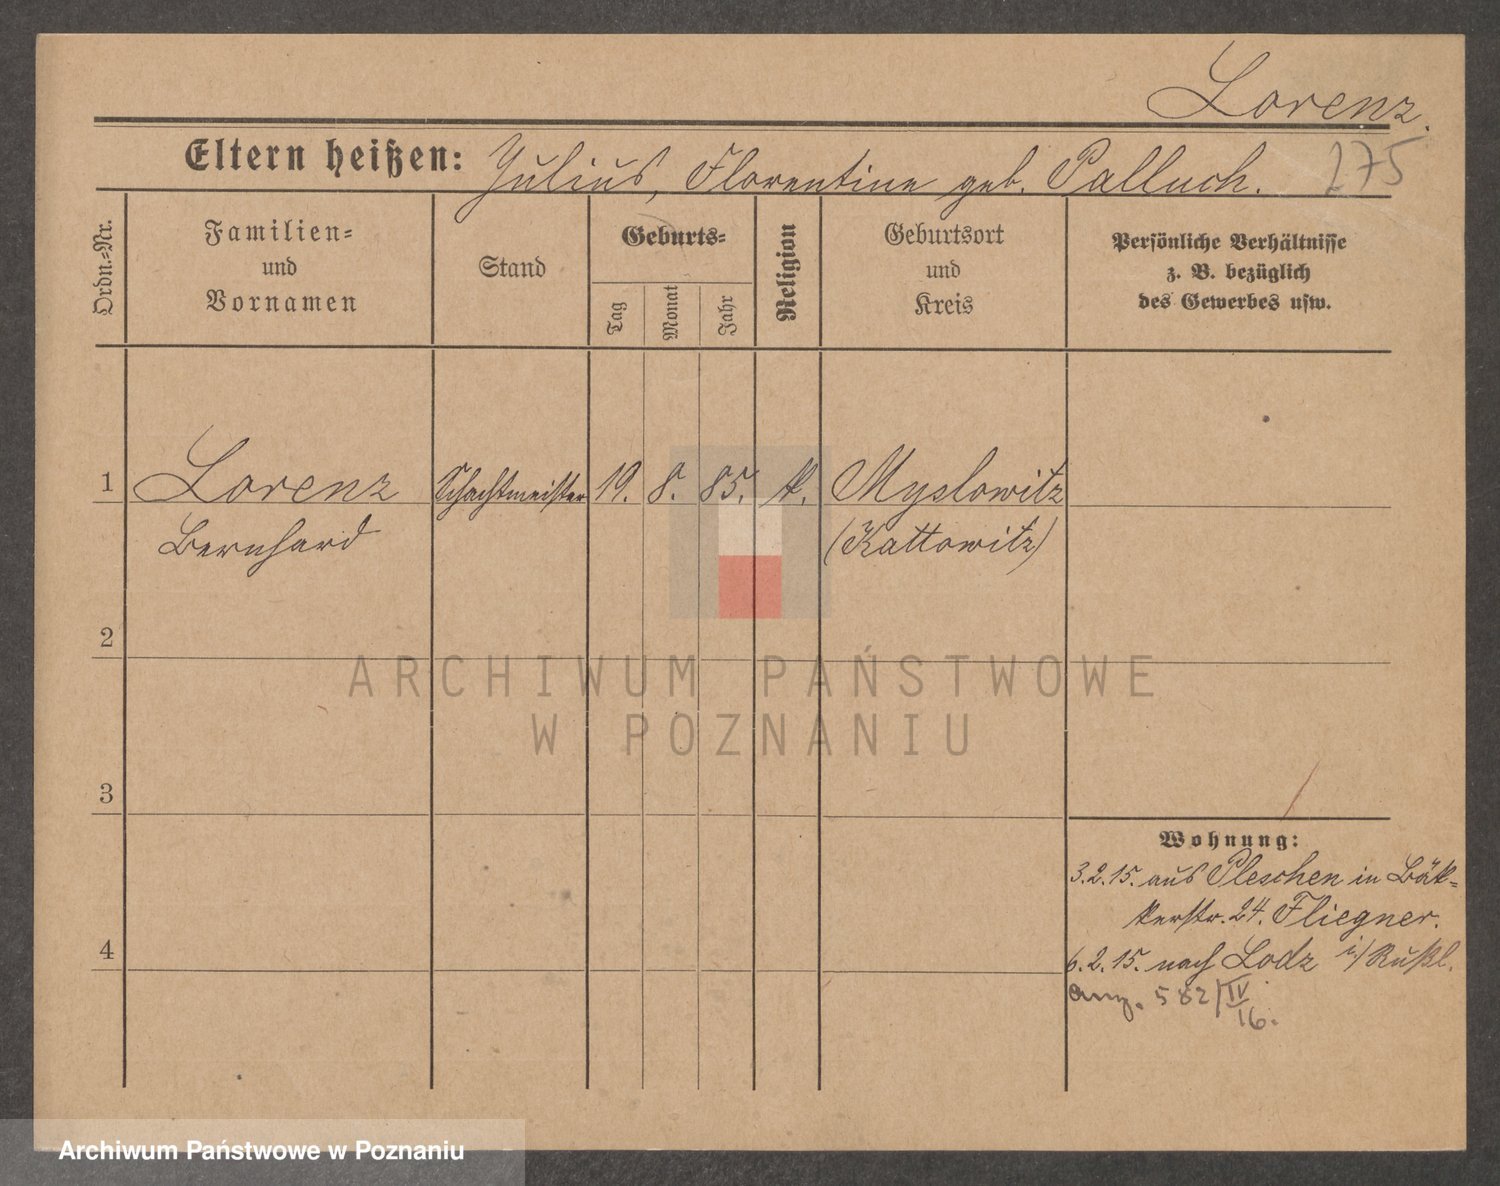 Lorenz.
Eltern heißen: Julius, Florentine geb. Palluch. 275
Ordn.-Nr.
Familien-
und
Vornamen
Stand
Geburts-
Tag
Monat
Jahr
Religion
Geburtsort
und
Kreis
Persönliche Verhältnisse
z. B. bezüglich
des Gewerbes usw.
1 Lorenz Schachtmeister 19. 8. 85. k. Myslowitz
Bernhard (Kattowitz)
2
3
4
ARCHIWUM PAŃSTWOWE
W POZNANIU
Wohnung:
3.2.15. aus Pleschen in Bäk-
kerstr. 24. Fliegner.
6.2.15. nach Lodz i/Rußl.
Anz. 582/IV
16.
Archiwum Państwowe w Poznaniu